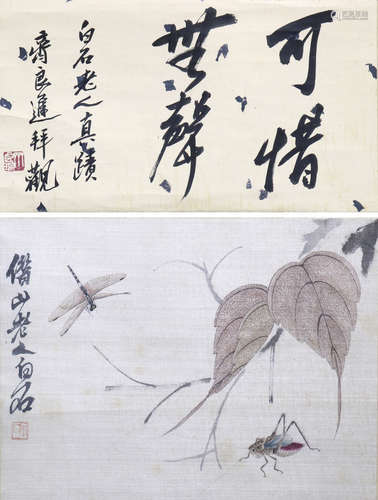 可惜
無聲
白石老人真蹟
齊良遲拜觀
借山老人白石